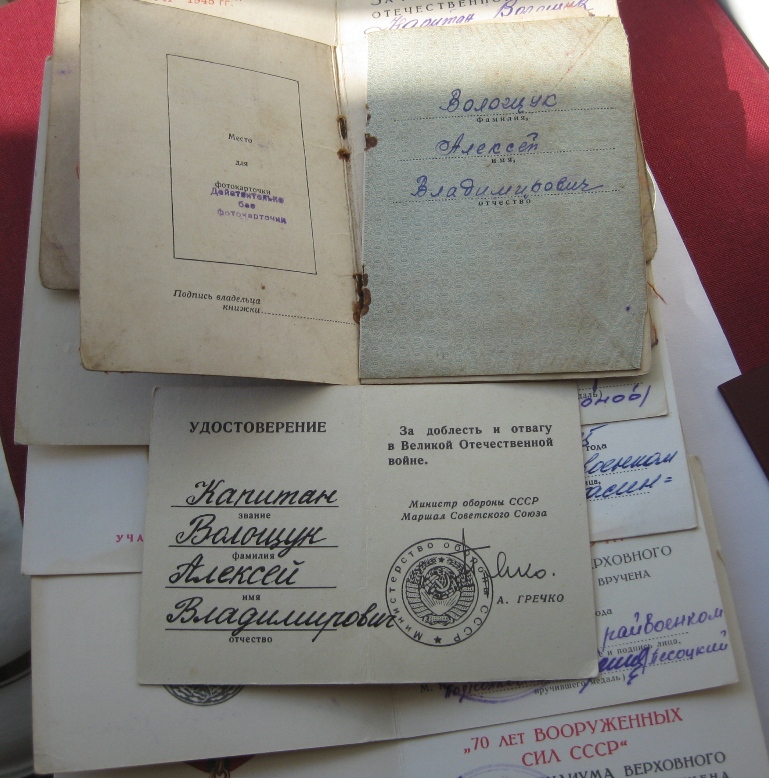 1945 гг."
ОТЕЧЕСТВЕННО
Капитан Волощук
Место
для
фотокарточки
Действительно
без
фотокарточки
Подпись владельца
книжки
Волощук
фамилия,
Алексей
имя,
Владимирович
отчество
УДОСТОВЕРЕНИЕ
Капитан
звание
Волощук
фамилия
Алексей
имя
Владимирович
отчество
За доблесть и отвагу
в Великой Отечественной
войне.
Министр обороны СССР
Маршал Советского Союза
Министерство обороны СССР
А. ГРЕЧКО
УЧА
года
военком
ВЕРХОВНОГО
ВРУЧЕНА
года
райвоенком
и подпись лица,
Песоцкий
М.
вручившего медаль)
„70 ЛЕТ ВООРУЖЕННЫХ
СИЛ СССР“
ИУМА ВЕРХОВНОГО